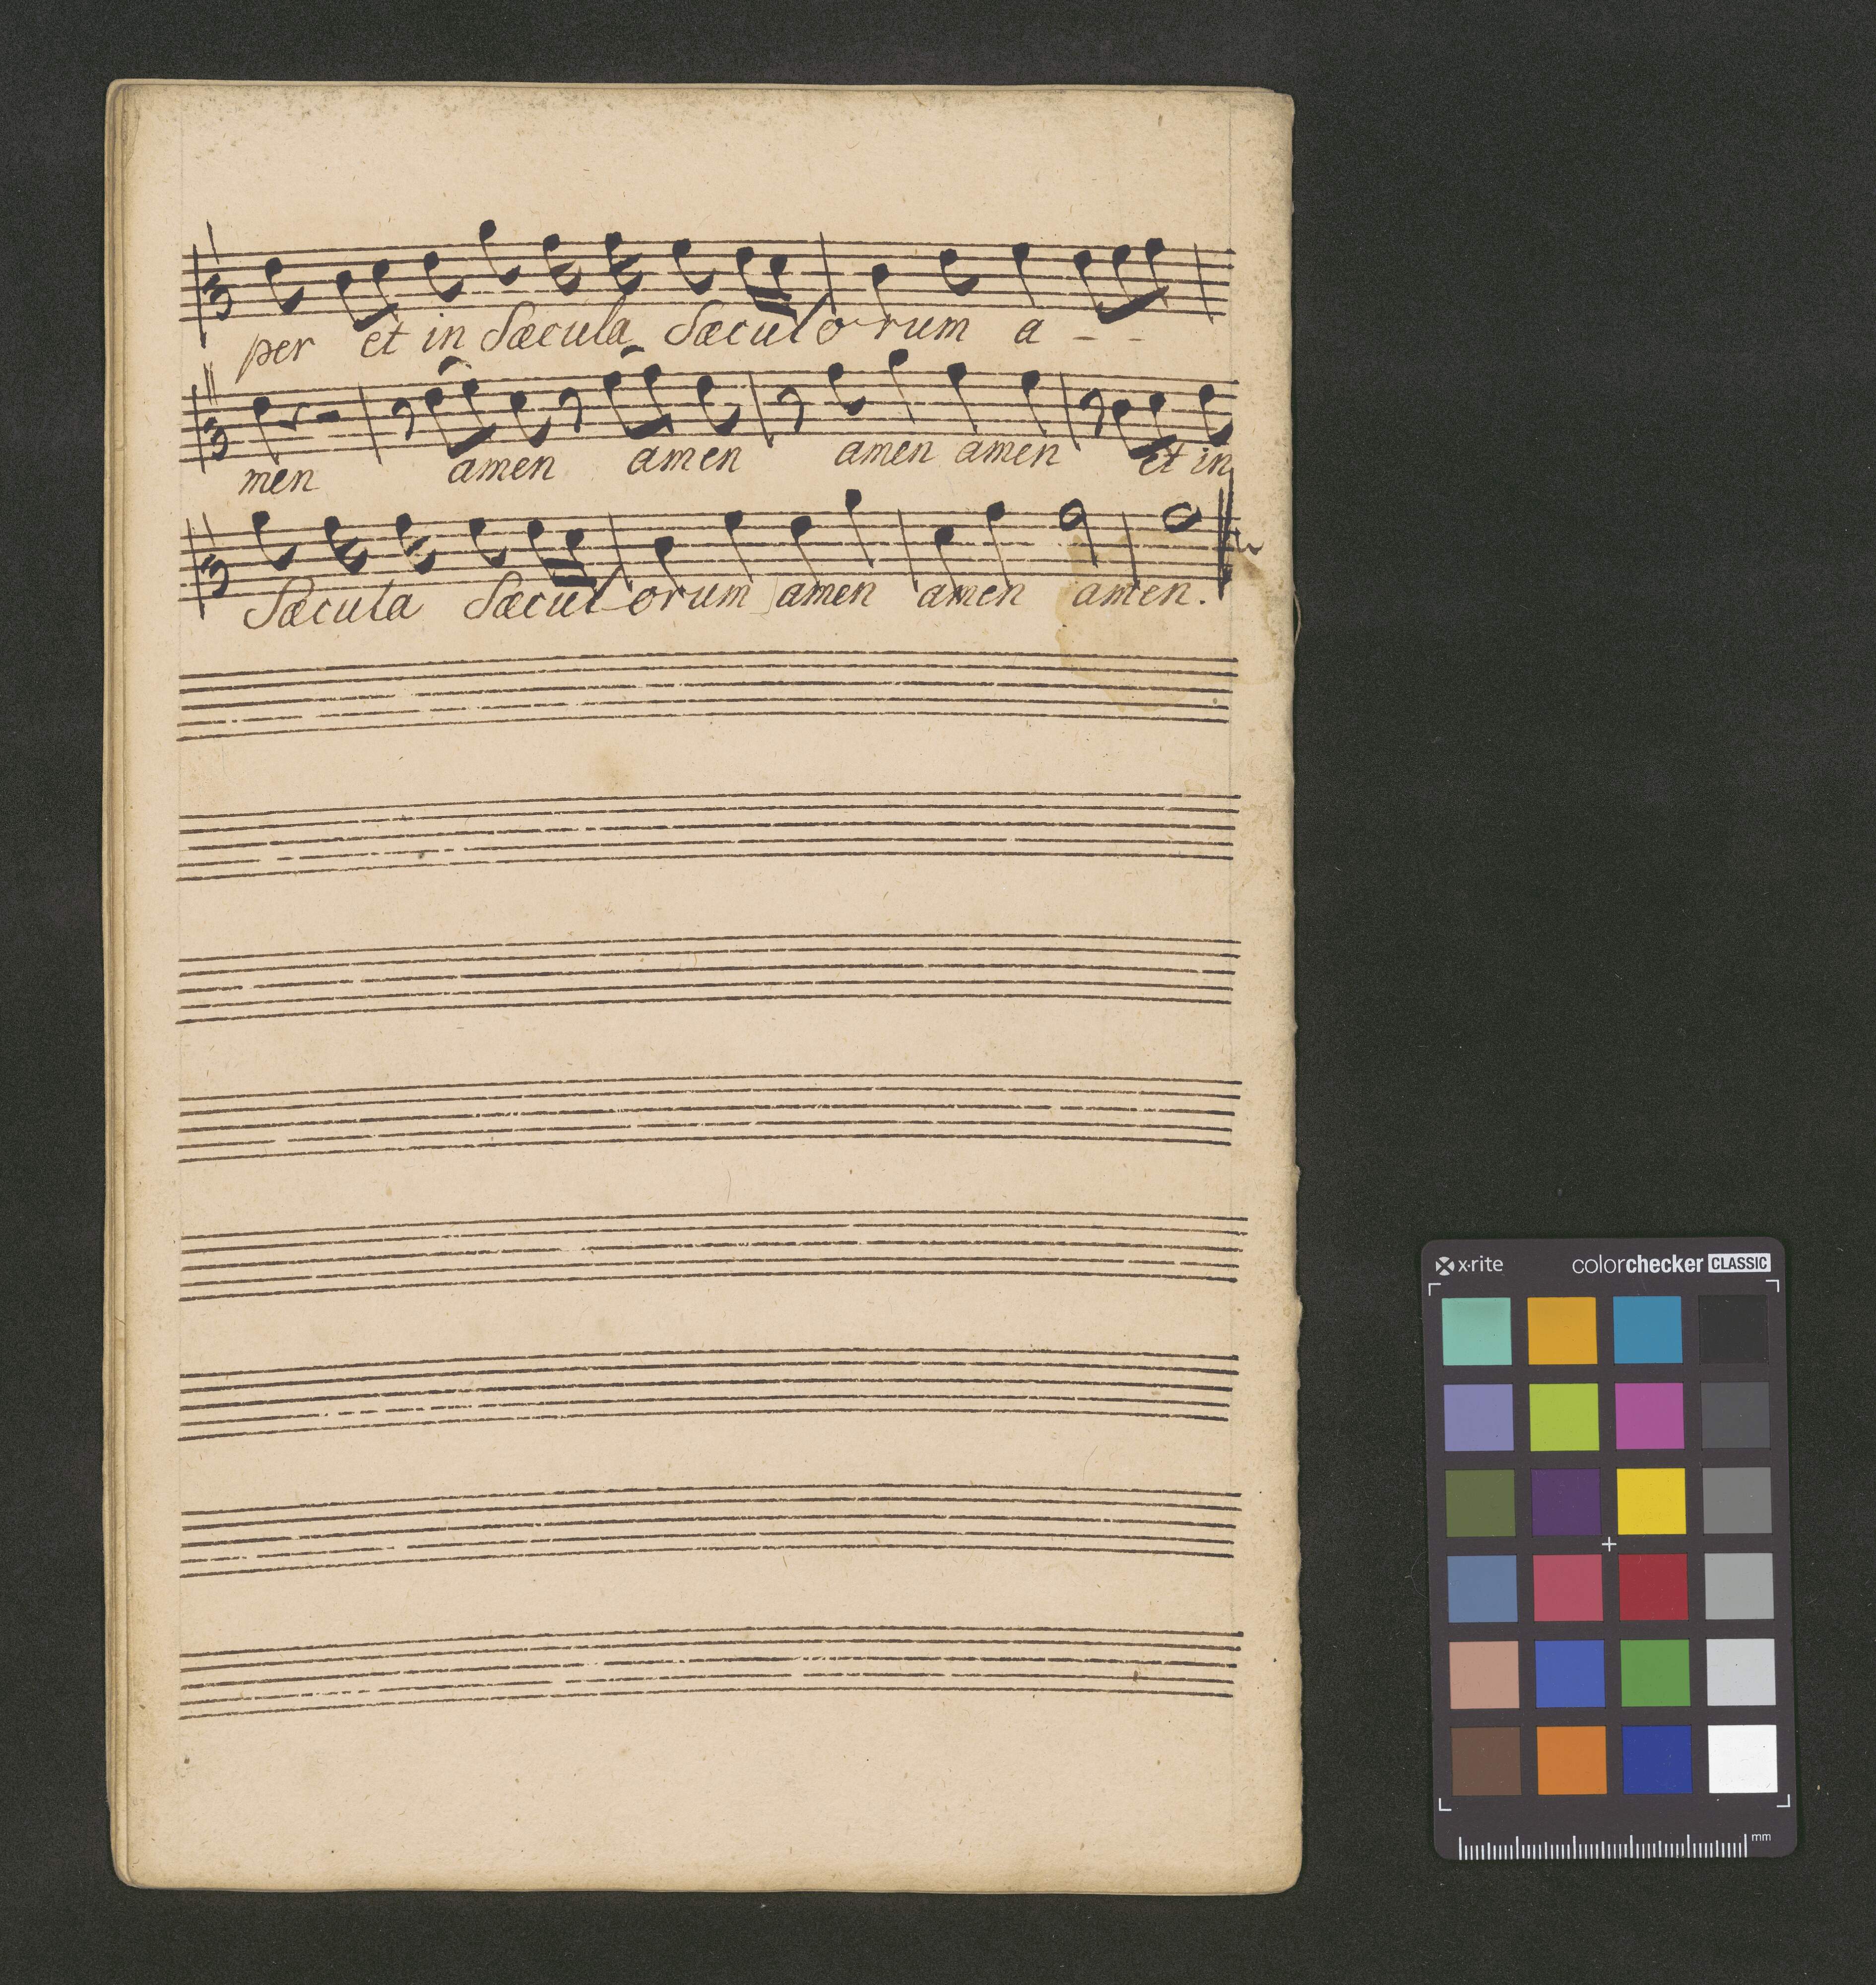 per et in Sæcula Sæculorum a - -
men amen amen amen amen et in
Sæcula Sæculorum amen amen amen.
x·rite colorchecker CLASSIC
mm